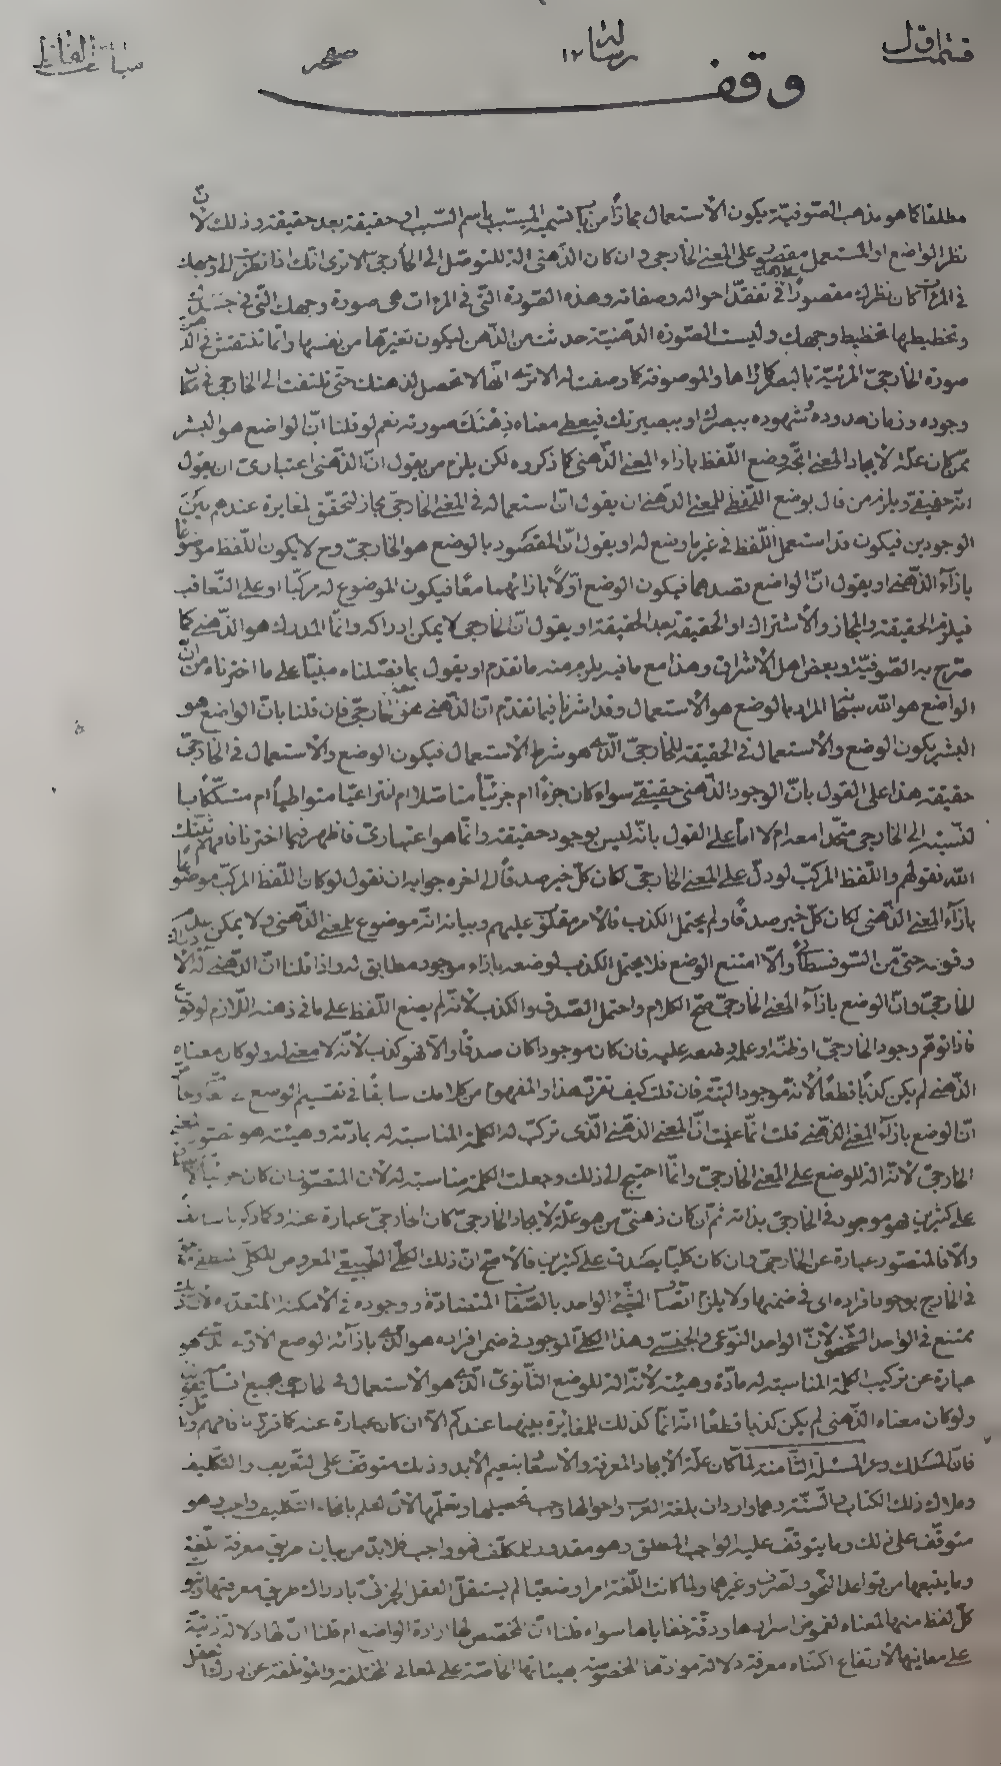 قسمت اول رسالة ١٢ صفحه مباحث الفاظ
وقف
مطلقا كما هو مذهب الصوفية يكون الاستعمال مجازا من باب تسمية المسبب باسم السبب او حقيقة بعد حقيقة وذلك لانّ
نظر الواضع او المستعمل مقصور على المعنى الخارجى وان كان الذهنى الة للتوصل الى الخارجى الا ترى انك اذا نظرت الى وجهك
فى المرءات كان نظرك مقصورا فى تفقد احواله وصفاته وهذه الصورة التى فى المرءات هى صورة وجهك التى فى
وتخطيطها تخطيط وجهك وليست الصورة الذهنية حدثت من الذهن ليكون تغيرها من نفسها وانما تنتقش فى
صورة الخارجى المرئية بالبصر كما راها والموصوفة كما وصفت له الا ترى انها لا تحصل لذهنك حتى تلتفت الى الخارجى فى مكان
وجوده وزمان حدوده شهوده ببصرك او ببصيرتك فيعطى معناه ذهنك صورته نعم لو قلنا ان الواضع هو البشر
ممن كان علة لايجاد المعنى اتجه وضع اللفظ بازاء المعنى الذهنى كما ذكروه لكن يلزم من يقول ان الذهنى اعتبارى ان يقول
انه حقيقى ويلزم من قال بوضع اللفظ للمعنى الذهنى ان يقول ان استعماله فى المعنى الخارجى مجاز لتحقق المغايرة عندهم بين
الوجودين فيكون قد استعمل اللفظ فى غير ما وضع له او يقول ان المقصود بالوضع هو الخارجى وح لا يكون اللفظ موضوعا
بازآء الذهنى او يقول ان الواضع قصدهما فيكون الوضع اولا بازائهما معا فيكون الموضوع له مركبا او على التعاقب
فيلزم الحقيقة والمجاز والاشتراك او الحقيقة بعد الحقيقة او يقول ان الخارجى لا يمكن ادراكه وانما المدرك هو الذهنى كما
صرح به الصوفية وبعض اهل الاشراق وهذا مع ما فيه يلزم منه ما تقدم او يقول بما فصلناه مبنيا على ما اخترناه من ان
الواضع هو الله سبحانه المراد بالوضع هو الاستعمال وقد اشرنا فيما تقدم ان الذهنى خارجى فان قلنا بان الواضع هو
البشر يكون الوضع والاستعمال فى الحقيقة للخارجى الذى هو شرط الاستعمال فيكون الوضع والاستعمال فى الخارجى
حقيقة هذا على القول بان الوجود الذهنى حقيقى سواء كان جزءا ام جزئيا متاصلا ام انتزاعيا متواطيا ام مشككا بالـ
لنسبة الى الخارجى متحدا معه ام لا اما على القول بانه ليس بوجود حقيقة وانما هو اعتبارى فاظهر فيما اخترنا فافهم ثبتك
الله فقولهم واللفظ المركب لو دل على المعنى الخارجى لكان كل خبر صدقا الى اخره جوابه ان نقول لو كان اللفظ المركب موضوعا
بازآء المعنى الذهنى لكان كل خبر صدقا ولم يحتمل الكذب فالامر مقلوب عليهم وبيانه انه موضوع للمعنى الذهنى ولا يمكن
وقوعه حتى من السوفسطائى والا امتنع الوضع فلا يحتمل الكذب لوضعه بازاء موجود مطابق له واذا قلنا ان الذهنى الة
للخارجى وان الوضع بازآء المعنى الخارجى صح الكلام واحتمل الصدق والكذب لانه لم يضع اللفظ على ما فى ذهنه اللازم
فاذا توهم وجود الخارجى او ظنه او علمه وضعه عليه فان كان موجودا كان صدقا والا فهو كذب لانه لا معنى له ولو كان معناه
الذهنى لم يكن كذبا قطعا لانه موجود البتة فان قلت كيف تقرر هذا والمفهوم من كلامك سابقا فى تقسيم الوضع
ان الوضع بازآء المعنى الذهنى قلت انما عنيت ان المعنى الذهنى الذى تركب له الكلمة المناسبة له بمادته وهيئته هو
الخارجى لانه الة للوضع على المعنى الخارجى وانما احتيج الى ذلك وجعلت الكلمة مناسبة له لان المتصور ان كان جزئيا
على كثيرين فهو موجود فى الخارجى بذاته ثم ان كان ذهنى من هو علة لايجاد الخارجى كان الخارجى عبارة عنه وكما ذكرنا سابقا
والا فالمتصور عبارة عن الخارجى وان كان كليا يصدق على كثيرين فالاصح ان ذلك الكلى الطبيعى المعروض للكلى المنطقى
فى الخارج بوجود افراده اى فى ضمنها ولا يلزم اتصاف الشئ الواحد بالصفات المتضادة ووجوده فى الامكنة المتعددة لان ذلك
يمتنع فى الواحد الشخصى لا الواحد النوعى والجنسى وهذا الكلى الموجود فى ضمن افراده هو الذى بازآئه الوضع الاول الذى هو
عبارة عن تركيب الكلمة المناسبة له مادة وهيئة لانه الة للوضع الثانوى الذى هو الاستعمال فى الخارجى
ولو كان معناه الذهنى لم يكن كذبا قطعا انه انما كذلك للمغايرة بينهما عندكم الا ان كان عبارة عنه كما قررنا فافهم
قال سلمك الله المسئلة الثامنة لما كان علة الايجاد المعرفة والاستعا بنعيم الابد وذلك متوقف على التعريف والتكليف
وملاك ذلك الكتاب والسنة وهما واردان بلغة العرب واحوالها وجب تحصيلها وتعلمها لان العلم بانحاء التكليف واجب وهو
متوقف على ذلك وما يتوقف عليه الواجب المطلق وهو مقدور للمكلف فهو واجب فلابد من بيان طريق معرفة اللغة
وما يتبعها من قواعد النحو والصرف وغيرهما ولما كانت اللغة امرا وضعيا لم يستقل العقل الجزئى بادراك طريق معرفتها
كل لفظ منها لمعناه لغموض اسرارها ودقة خفاياها سواء قلنا ان المخصص لها ارادة الواضع ام قلنا ان لها دلالة ذاتية
على معانيها لارتفاع اكتناه معرفة دلالة موادها المخصوصة بهيئاتها الخاصة على المعانى المختلفة والمؤتلفة عن درك